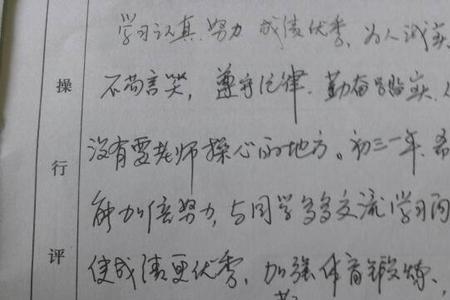 操行评
学习认真、努力 成绩优秀、为人诚实、
不苟言笑, 遵守纪律. 勤奋踏实、
没有要老师操心的地方。初三一年、希
能加倍努力,与同学多多交流学习
使成绩更优秀、加强体育锻炼、